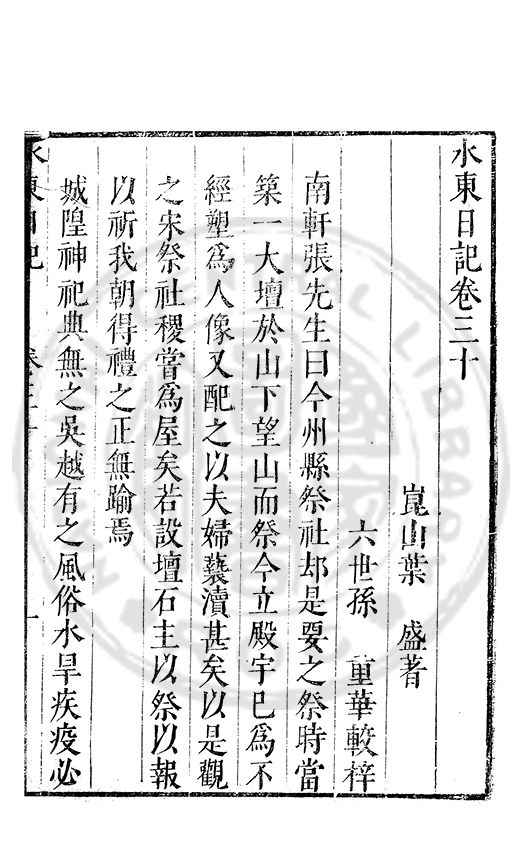 水東日記卷三十
崑山葉 盛著
六世孫 重華較梓
南軒張先生曰今州縣祭社却是要之祭時當
築一大壇於山下望山而祭今立殿宇已爲不
經塑爲人像又配之以夫婦褻瀆甚矣以是觀
之宋祭社稷當爲屋矣若設壇石主以祭以報
以祈我朝得禮之正無踰焉
城隍神祀典無之吳越有之風俗水旱疾疫必
水東日記 卷三十 一